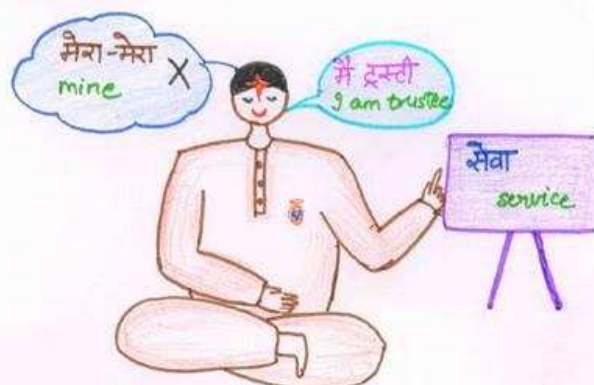 मेरा-मेरा
mine X
मैं ट्रस्टी
I am trustee
सेवा
service